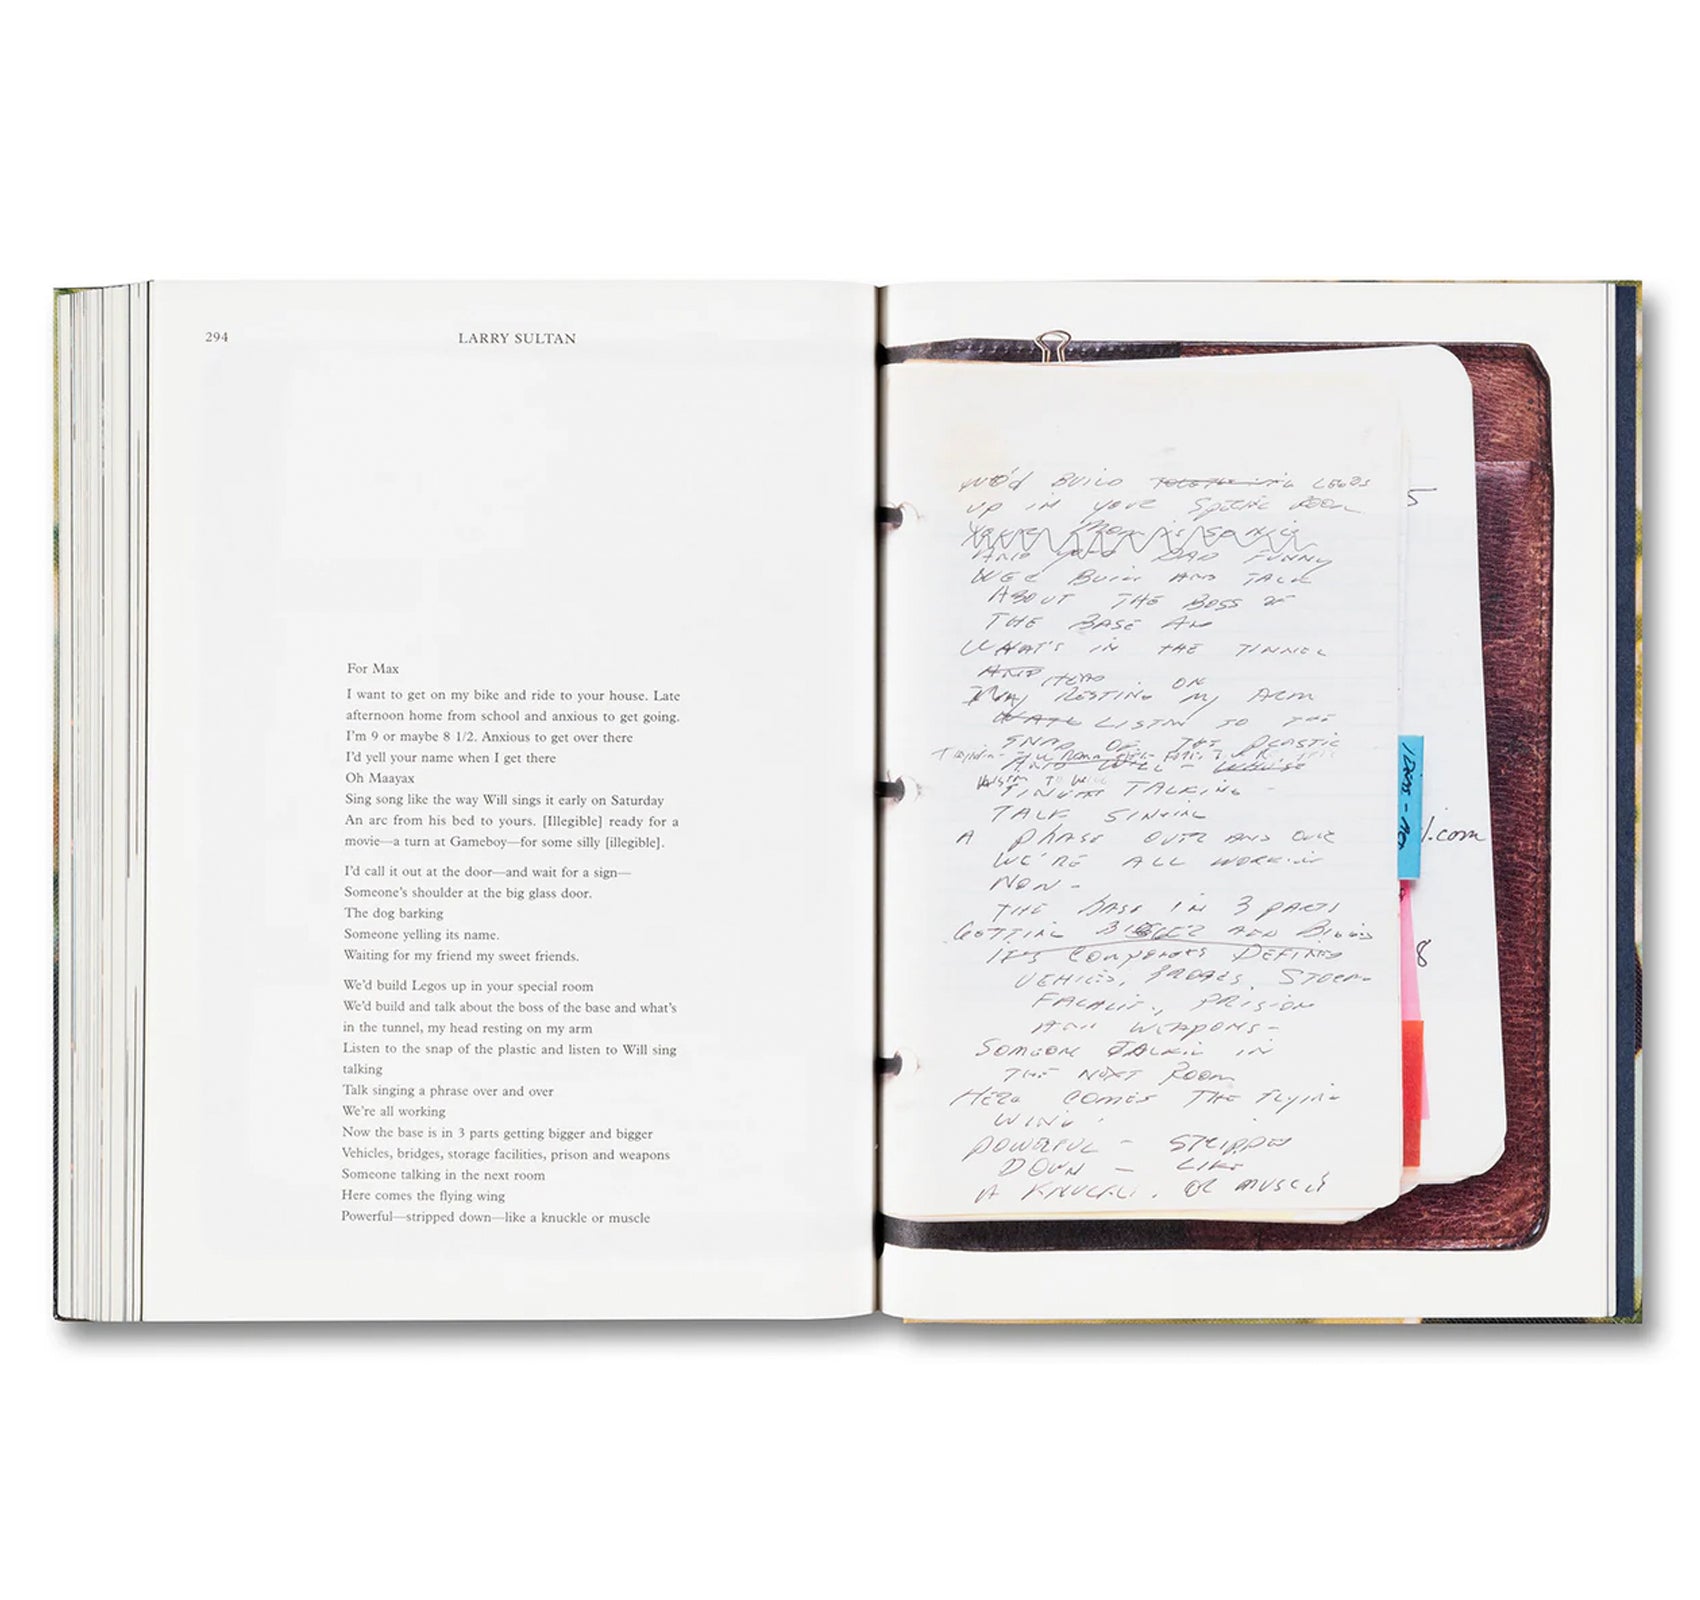 294
LARRY SULTAN
For Max
I want to get on my bike and ride to your house. Late
afternoon home from school and anxious to get going.
I'm 9 or maybe 8 1/2. Anxious to get over there
I'd yell your name when I get there
Oh Maayax
Sing song like the way Will sings it early on Saturday
An arc from his bed to yours. [Illegible] ready for a
movie—a turn at Gameboy—for some silly [illegible].
I'd call it out at the door—and wait for a sign—
Someone's shoulder at the big glass door.
The dog barking
Someone yelling its name.
Waiting for my friend my sweet friends.
We'd build Legos up in your special room
We'd build and talk about the boss of the base and what's
in the tunnel, my head resting on my arm
Listen to the snap of the plastic and listen to Will sing
talking
Talk singing a phrase over and over
We're all working
Now the base is in 3 parts getting bigger and bigger
Vehicles, bridges, storage facilities, prison and weapons
Someone talking in the next room
Here comes the flying wing
Powerful—stripped down—like a knuckle or muscle
WE'D BUILD LEGOS
UP IN YOUR SPECIAL ROOM
MOM IS SO NICE
AND YOUR DAD FUNNY
BUILD AND TALK
ABOUT THE BOSS OF
THE BASE AN
WHAT'S IN THE TUNNEL
AND HEAD ON
MY RESTING MY ARM
LISTEN TO THE
SNAP OF THE PLASTIC
AND WILL
TALKING -
TALK SINGING
A PHRASE OVER AND OVER
WE'RE ALL WORKING
NOW -
THE BASE IN 3 PARTS
GETTING BIGGER AND BIGGER
IT'S DEFINED
VEHICLES, BRIDGES, STORAGE
FACILIT, PRISION
AND WEAPONS -
SOMEONE TALKING IN
THE NEXT ROOM
HERE COMES THE FLYING
WING
POWERFUL - STRIPPED
DOWN - LIKE
A KNUCKLE, OR MUSCLE
5
l.com
8